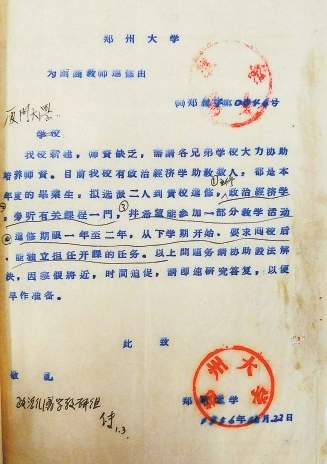 郑州大学
为商商教师进修由
(56)郑教字第0046号
厦门大学:
学校
我校新建,师资缺乏,需请各兄弟学校大力协助
培养师资。目前我校有政治经济学助教数人,都是本
年度的毕业生,拟选派二人到贵校进修,①主修政治经济学
②旁听有关课程一门,③并希望能参加一部分教学活动
④进修期限一年至二年,从下学期开始。要求回校后
能独立担任开课的任务。以上问题务请协助设法解
决,因寒假将近,时间迫促,请即速研究答复,以便
早作准备。
此致
敬礼
郑州大学
1956年12月22日
政治经济学教研组
1.3.